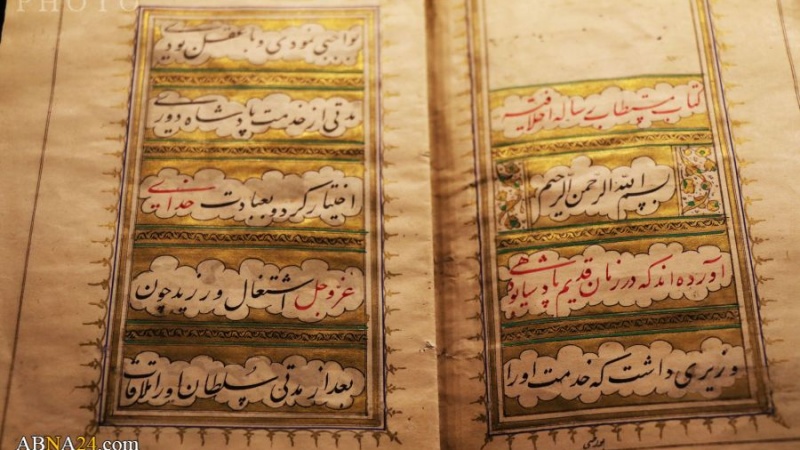 PHOTO
کتاب مستطاب رساله اخلاقیه
بسم الله الرحمن الرحیم
آورده‌اند که در زمان قدیم پادشاهی بوده
وزیری داشت که خدمت او را
بواجبی نمودی و با عقل بودی
مدتی از خدمت پادشاه دوری
اختیار کرد و بعبادت خدای
عز و جل اشتغال ورزید چون
بعد از مدتی سلطان او را ملاقات
ABNA24.com